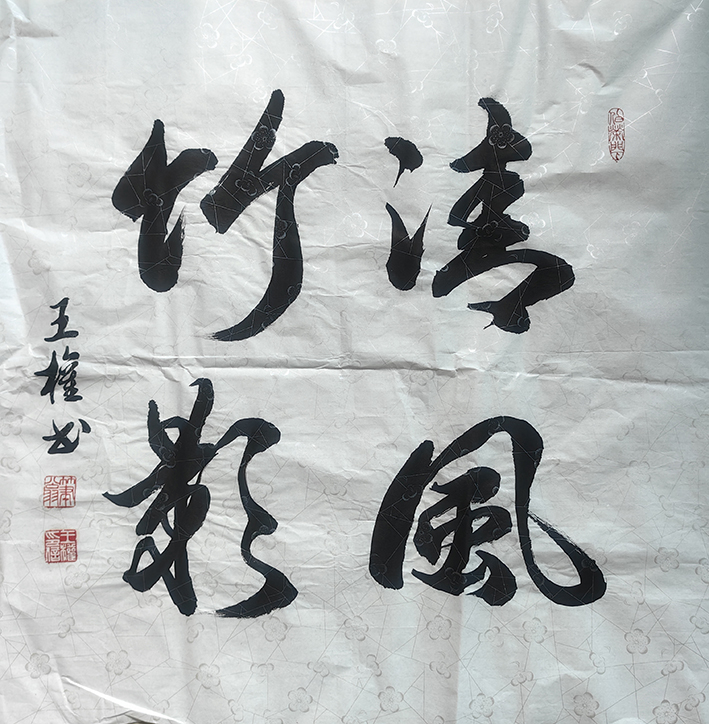 清風
竹影
王權书